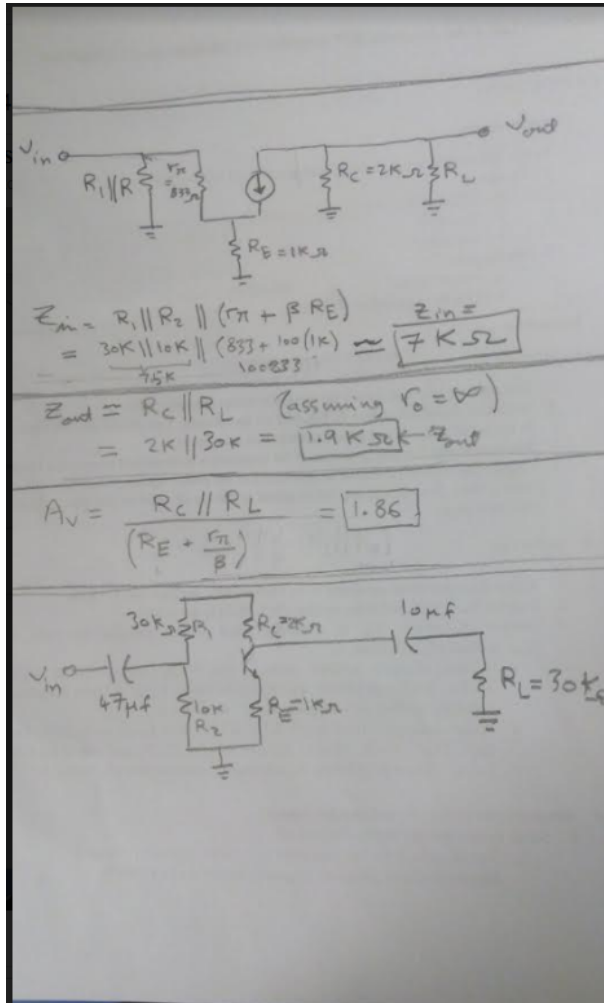 Vin
R₁||R
rπ
=
833Ω
RC = 2KΩ
RL
Vout
RE = 1KΩ
Zin = R₁ || R₂ || (rπ + β RE)
= 30K || 10K || (833 + 100(1K)) ≃ Zin = 7 KΩ
7.5K
100833
Zout ≃ RC || RL (assuming ro = ∞)
= 2K || 30K = 1.9 KΩ ← Zout
AV = RC // RL / (RE + rπ/β) = 1.86
30KΩ R₁
RC=2KΩ
10μf
Vin
47μf
10K
R₂
RE=1KΩ
RL = 30K